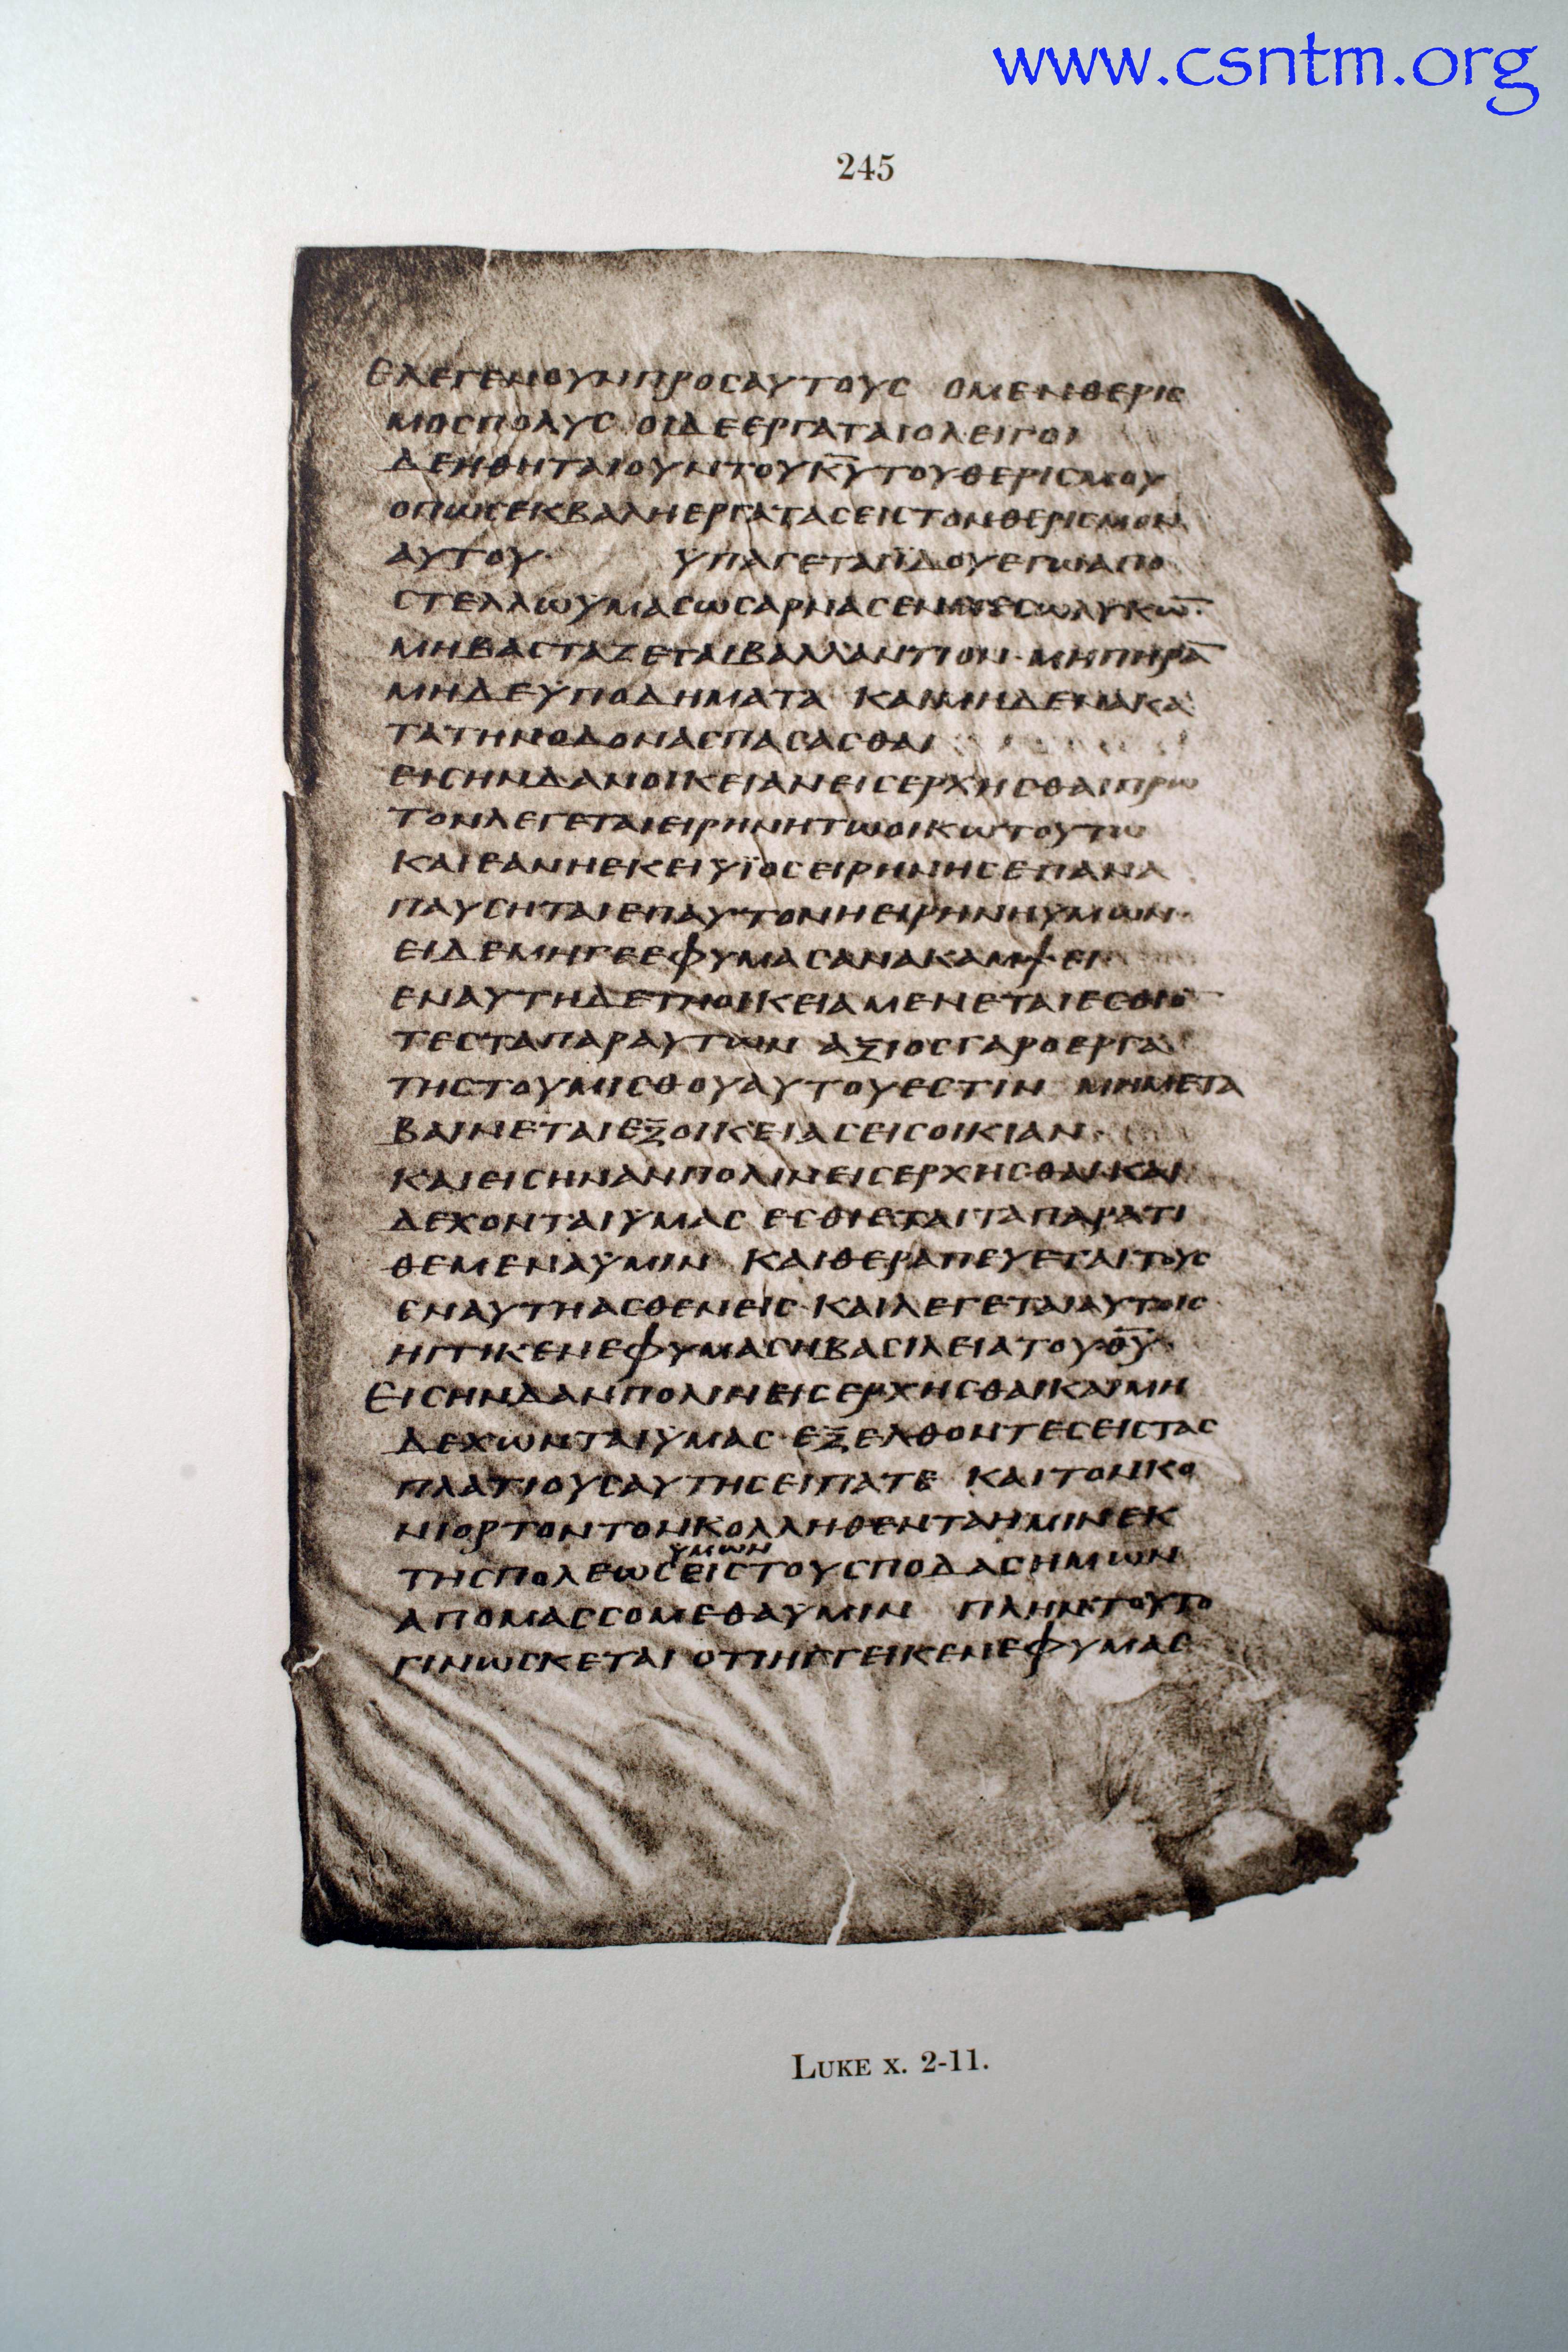 www.csntm.org
245
ΕΛΕΓΕΝΟΥΝΠΡΟΣΑΥΤΟΥΣ ΟΜΕΝΘΕΡΙΣ
ΜΟΣΠΟΛΥΣ ΟΙΔΕΕΡΓΑΤΑΙΟΛΕΙΓΟΙ
ΔΕΗΘΗΤΑΙΟΥΝΤΟΥΚ̅Υ̅ΤΟΥΘΕΡΙΣΜΟΥ
ΟΠΩΣΕΚΒΑΛΗΕΡΓΑΤΑΣΕΙΣΤΟΝΘΕΡΙΣΜΟΝ
ΑΥΤΟΥ· ΥΠΑΓΕΤΑΙΪΔΟΥΕΓΩΑΠΟ
ΣΤΕΛΛΩΥΜΑΣΩΣΑΡΝΑΣΕΝΜΕΣΩΛΥΚΩ̅·
ΜΗΒΑΣΤΑΖΕΤΑΙΒΑΛΛΑΝΤΙΟΝ·ΜΗΠΗΡΑ̅
ΜΗΔΕΫΠΟΔΗΜΑΤΑ ΚΑΙΜΗΔΕΝΑΚΑ
ΤΑΤΗΝΟΔΟΝΑΣΠΑΣΑΣΘΑΙ
ΕΙΣΗΝΔΑΝΟΙΚΕΙΑΝΕΙΣΕΡΧΗΣΘΑΙΠΡΩ
ΤΟΝΛΕΓΕΤΑΙΕΙΡΗΝΗΤΩΟΙΚΩΤΟΥΤΩ
ΚΑΙΕΑΝΗΕΚΕΙΥΪΟΣΕΙΡΗΝΗΣΕΠΑΝΑ
ΠΑΥΣΗΤΑΙΕΠΑΥΤΟΝΗΕΙΡΗΝΗΥΜΩΝ·
ΕΙΔΕΜΗΓΕΕΦΥΜΑΣΑΝΑΚΑΜΨΕΙ
ΕΝΑΥΤΗΔΕΤΗΟΙΚΕΙΑΜΕΝΕΤΑΙΕΣΘΙΟ̅
ΤΕΣΤΑΠΑΡΑΥΤΩΝ ΑΞΙΟΣΓΑΡΟΕΡΓΑ
ΤΗΣΤΟΥΜΙΣΘΟΥΑΥΤΟΥΕΣΤΙΝ ΜΗΜΕΤΑ
ΒΑΙΝΕΤΑΙΕΞΟΙΚΕΙΑΣΕΙΣΟΙΚΙΑΝ·
ΚΑΙΕΙΣΗΝΑΝΠΟΛΙΝΕΙΣΕΡΧΗΣΘΑΙΚΑΙ
ΔΕΧΟΝΤΑΙΥΜΑΣ ΕΣΘΙΕΤΑΙΤΑΠΑΡΑΤΙ
ΘΕΜΕΝΑΥΜΙΝ ΚΑΙΘΕΡΑΠΕΥΕΤΑΙΤΟΥΣ
ΕΝΑΥΤΗΑΣΘΕΝΕΙΣ·ΚΑΙΛΕΓΕΤΑΙΑΥΤΟΙΣ
ΗΓΓΙΚΕΝΕΦΥΜΑΣΗΒΑΣΙΛΕΙΑΤΟΥΘ̅Υ̅·
ΕΙΣΗΝΔΑΝΠΟΛΙΝΕΙΣΕΡΧΗΣΘΑΙΚΑΙΜΗ
ΔΕΧΩΝΤΑΙΥΜΑΣ·ΕΞΕΛΘΟΝΤΕΣΕΙΣΤΑΣ
ΠΛΑΤΙΟΥΣΑΥΤΗΣΕΙΠΑΤΕ ΚΑΙΤΟΝΚΟ
ΝΙΟΡΤΟΝΤΟΝΚΟΛΛΗΘΕΝΤΑΗΜΙΝΕΚ
ΥΜΩΝ
ΤΗΣΠΟΛΕΩΣΕΙΣΤΟΥΣΠΟΔΑΣΗΜΩΝ
ΑΠΟΜΑΣΣΟΜΕΘΑΥΜΙΝ ΠΛΗΝΤΟΥΤΟ
ΓΙΝΩΣΚΕΤΑΙ ΟΤΙΗΓΓΕΙΚΕΝΕΦΥΜΑΣ
LUKE X. 2-11.